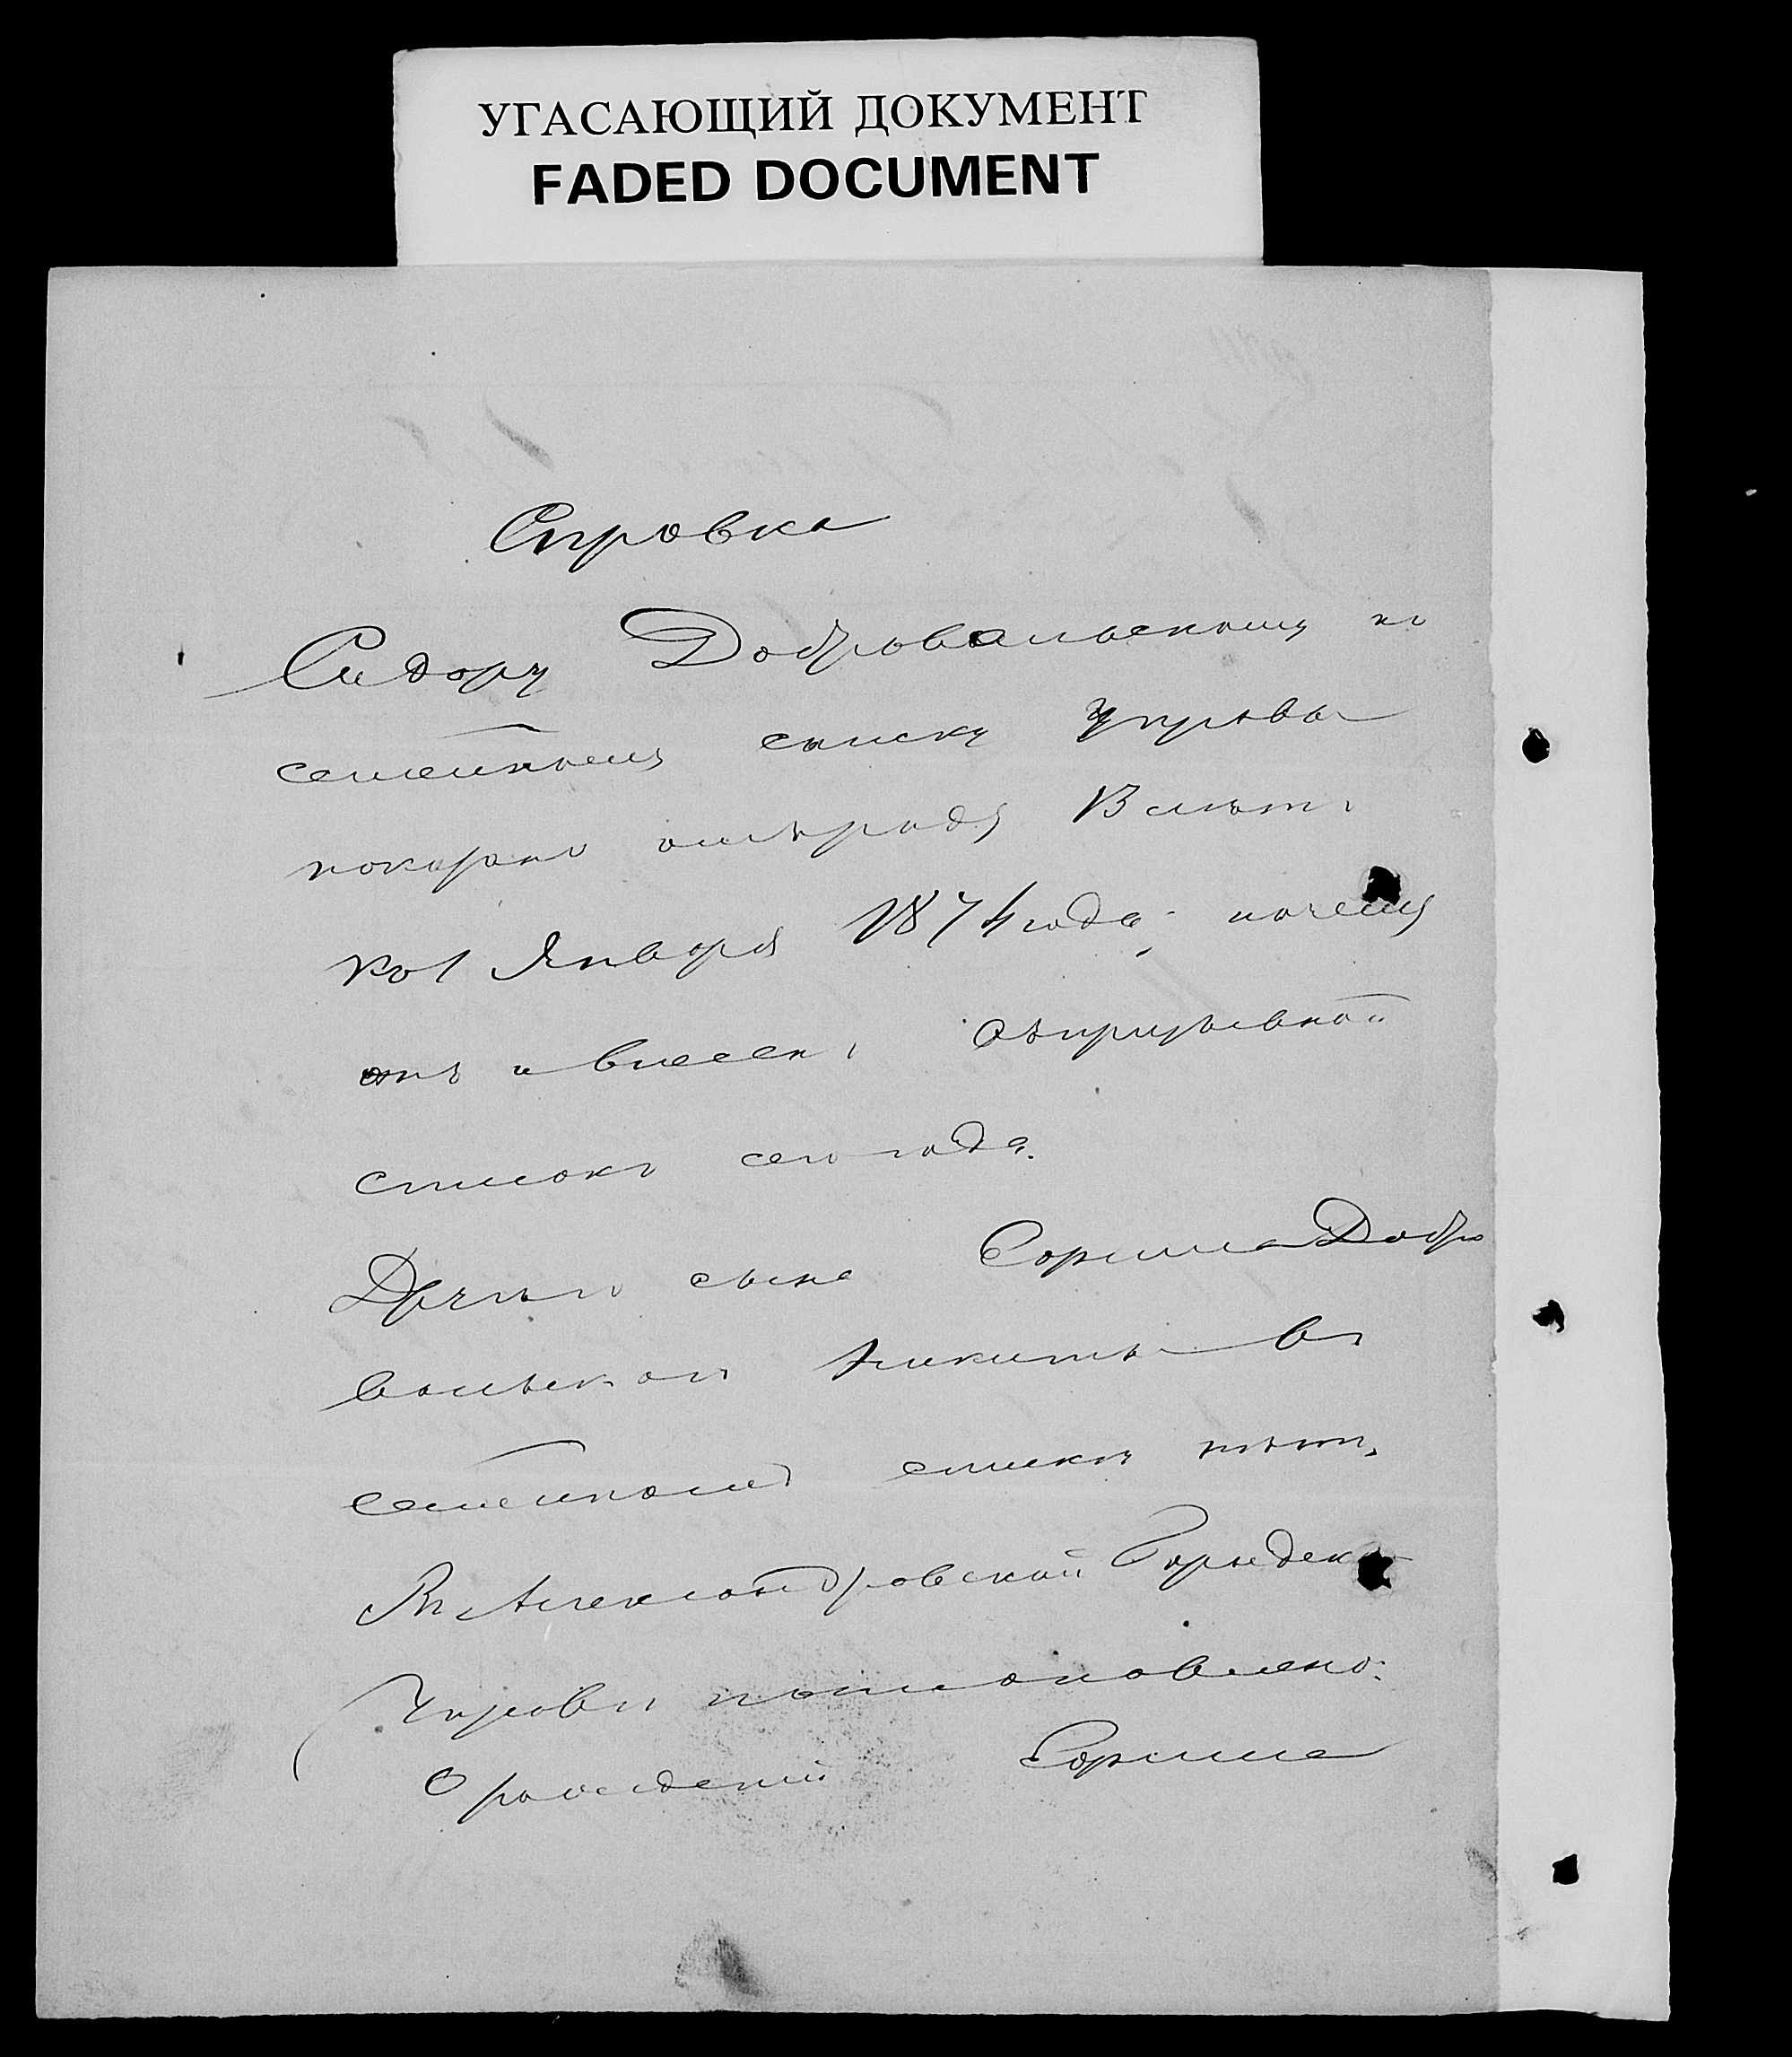 УГАСАЮЩИЙ ДОКУМЕНТ
FADED DOCUMENT
Справка
Сидору Добровольскому по
семейному списку Управы
показано отъ роду 13 лѣтъ
къ 1 Января 1874 года; почему
онъ и внесенъ въ призывной
списокъ сего года.
Другаго сына Сорина Добро
вольскаго Никиты въ
семейномъ спискѣ нѣтъ.
Въ Александровской Городской
Управѣ постановлено:
О рожденіи Сорина